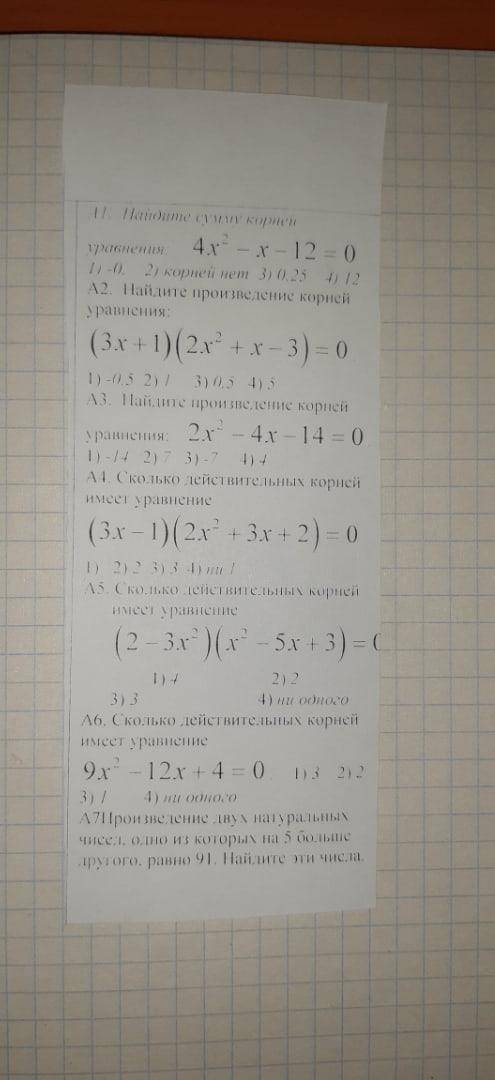 А1. Найдите сумму корней
уравнения: 4x² − x − 12 = 0
1) -0, 2) корней нет 3) 0,25 4) 12
А2. Найдите произведение корней
уравнения:
(3x + 1)(2x² + x − 3) = 0
1) -0,5 2) 1 3) 0,5 4) 5
А3. Найдите произведение корней
уравнения: 2x² − 4x − 14 = 0
1) -14 2) 7 3) -7 4) 4
А4. Сколько действительных корней
имеет уравнение
(3x − 1)(2x² + 3x + 2) = 0
1) 2) 2 3) 3 4) ни 1
А5. Сколько действительных корней
имеет уравнение
(2 − 3x²)(x² − 5x + 3) = 0
1) 4 2) 2
3) 3 4) ни одного
А6. Сколько действительных корней
имеет уравнение
9x² − 12x + 4 = 0 1) 3 2) 2
3) 1 4) ни одного
А7Произведение двух натуральных
чисел, одно из которых на 5 больше
другого, равно 91. Найдите эти числа.